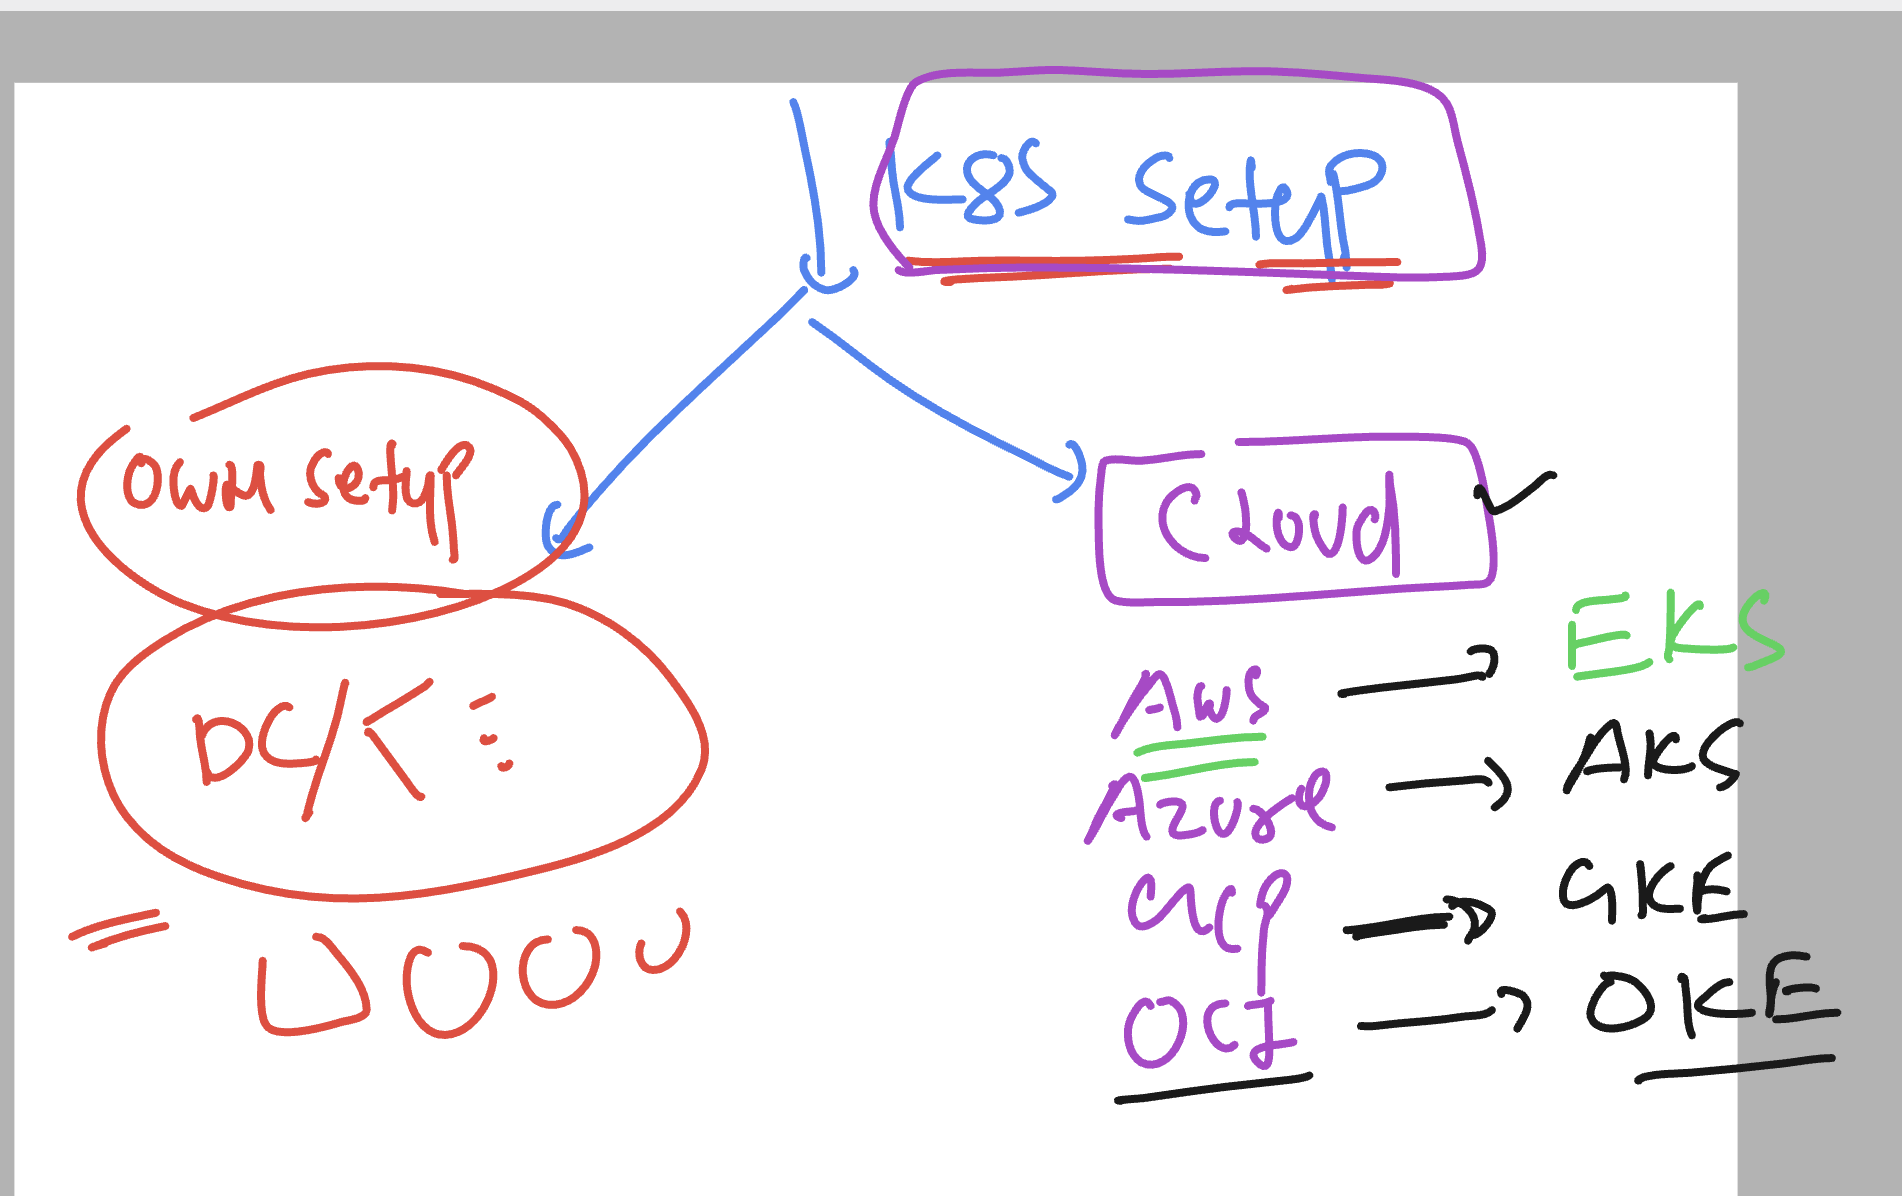 K8S Setup
Own Setup
Cloud
DC/
Aws EKS
Azure AKS
GCP GKE
OCI OKE